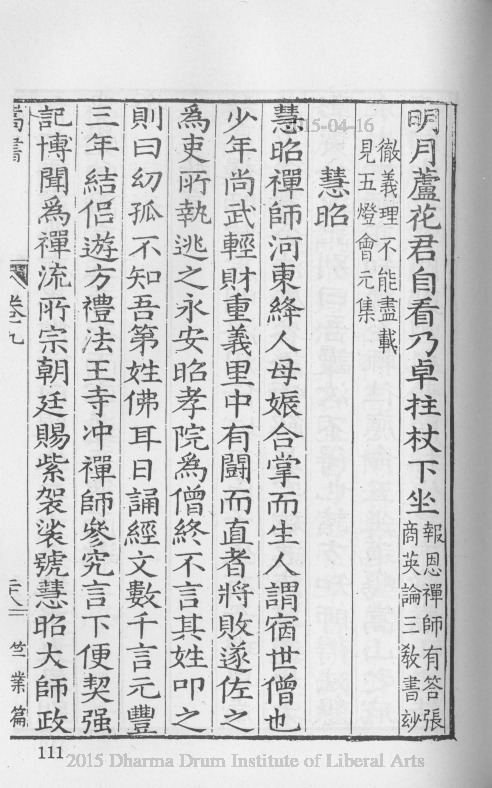 明月蘆花君自看乃卓拄杖下坐報恩禪師有答張
商英論三教書玅
徹義理不能盡載
見五燈會元集
慧昭
慧昭禪師河東絳人母娠合掌而生人謂宿世僧也
少年尚武輕財重義里中有鬪而直者將敗遂佐之
為吏所執逃之永安昭孝院為僧終不言其姓叩之
則曰幼孤不知吾第姓佛耳日誦經文數千言元豐
三年結侶遊方禮法王寺冲禪師參究言下便契强
記博聞為禪流所宗朝廷賜紫袈裟號慧昭大師政
卷九
竺業篇
111
2015 Dharma Drum Institute of Liberal Arts